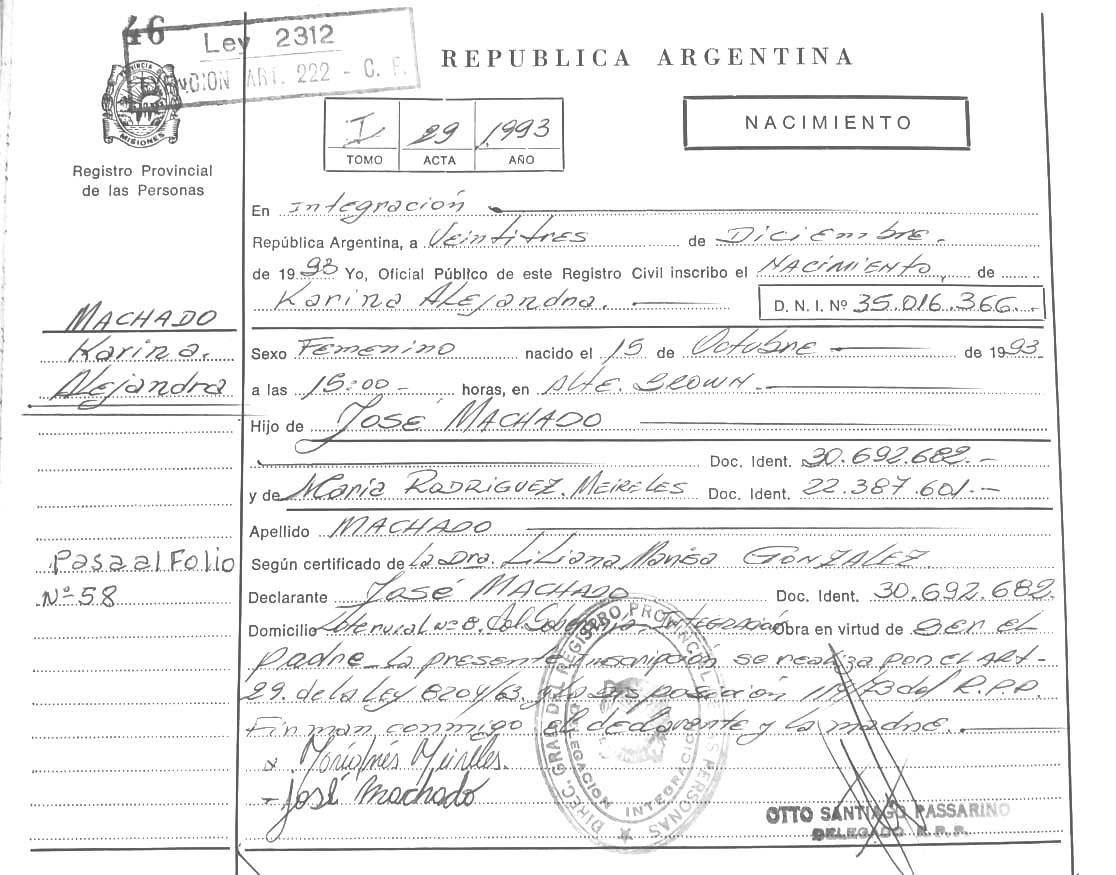 46
Ley 2312
ART. 222 - C. F.
REPUBLICA ARGENTINA
PROVINCIA DE
MISIONES
Registro Provincial
de las Personas
I 29 1.993
TOMO ACTA AÑO
NACIMIENTO
En Integración
República Argentina, a Veintitres de Diciembre.
de 1993 Yo, Oficial Público de este Registro Civil inscribo el NACIMIENTO, de
Karina Alejandra. D. N. I. Nº 35.016.366.-
MACHADO
Karina.
Alejandra
Sexo Femenino nacido el 15 de Octubre de 1993
a las 15:00- horas, en Alte. Brown.-
Hijo de José MACHADO
Doc. Ident. 30.692.682.-
y de Maria RODRIGUEZ MEIRELES Doc. Ident. 22.387.601.-
Apellido MACHADO
Pasa al Folio
Nº 58
Según certificado de la Dra. Liliana Marisa GONZALEZ
Declarante José MACHADO Doc. Ident. 30.692.682.
Domicilio Lote rural Nº 8. Integración Obra en virtud de Ser el
padre_ La presente inscripción se realiza por el ART-
29. de la Ley 8204/63. y la Disposición 119/73 del R.P.P.
Firman conmigo el declarante y la madre.
x Meireles.
- José Machado
DIREC. GRAL. DEL REGISTRO PROVINCIAL DE LAS PERSONAS
DELEGACION INTEGRACION
OTTO SANTIAGO PASSARINO
DELEGADO R.P.P.